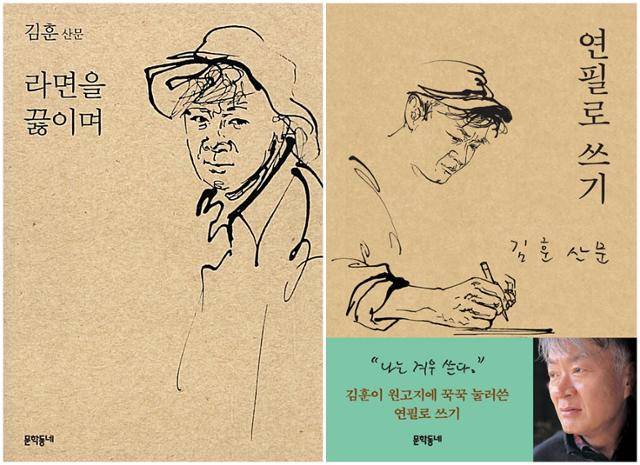 김훈 산문
라면을
끓이며
문학동네
연필로 쓰기
김훈 산문
"나는 겨우 쓴다."
김훈이 원고지에 꾹꾹 눌러쓴
연필로 쓰기
문학동네